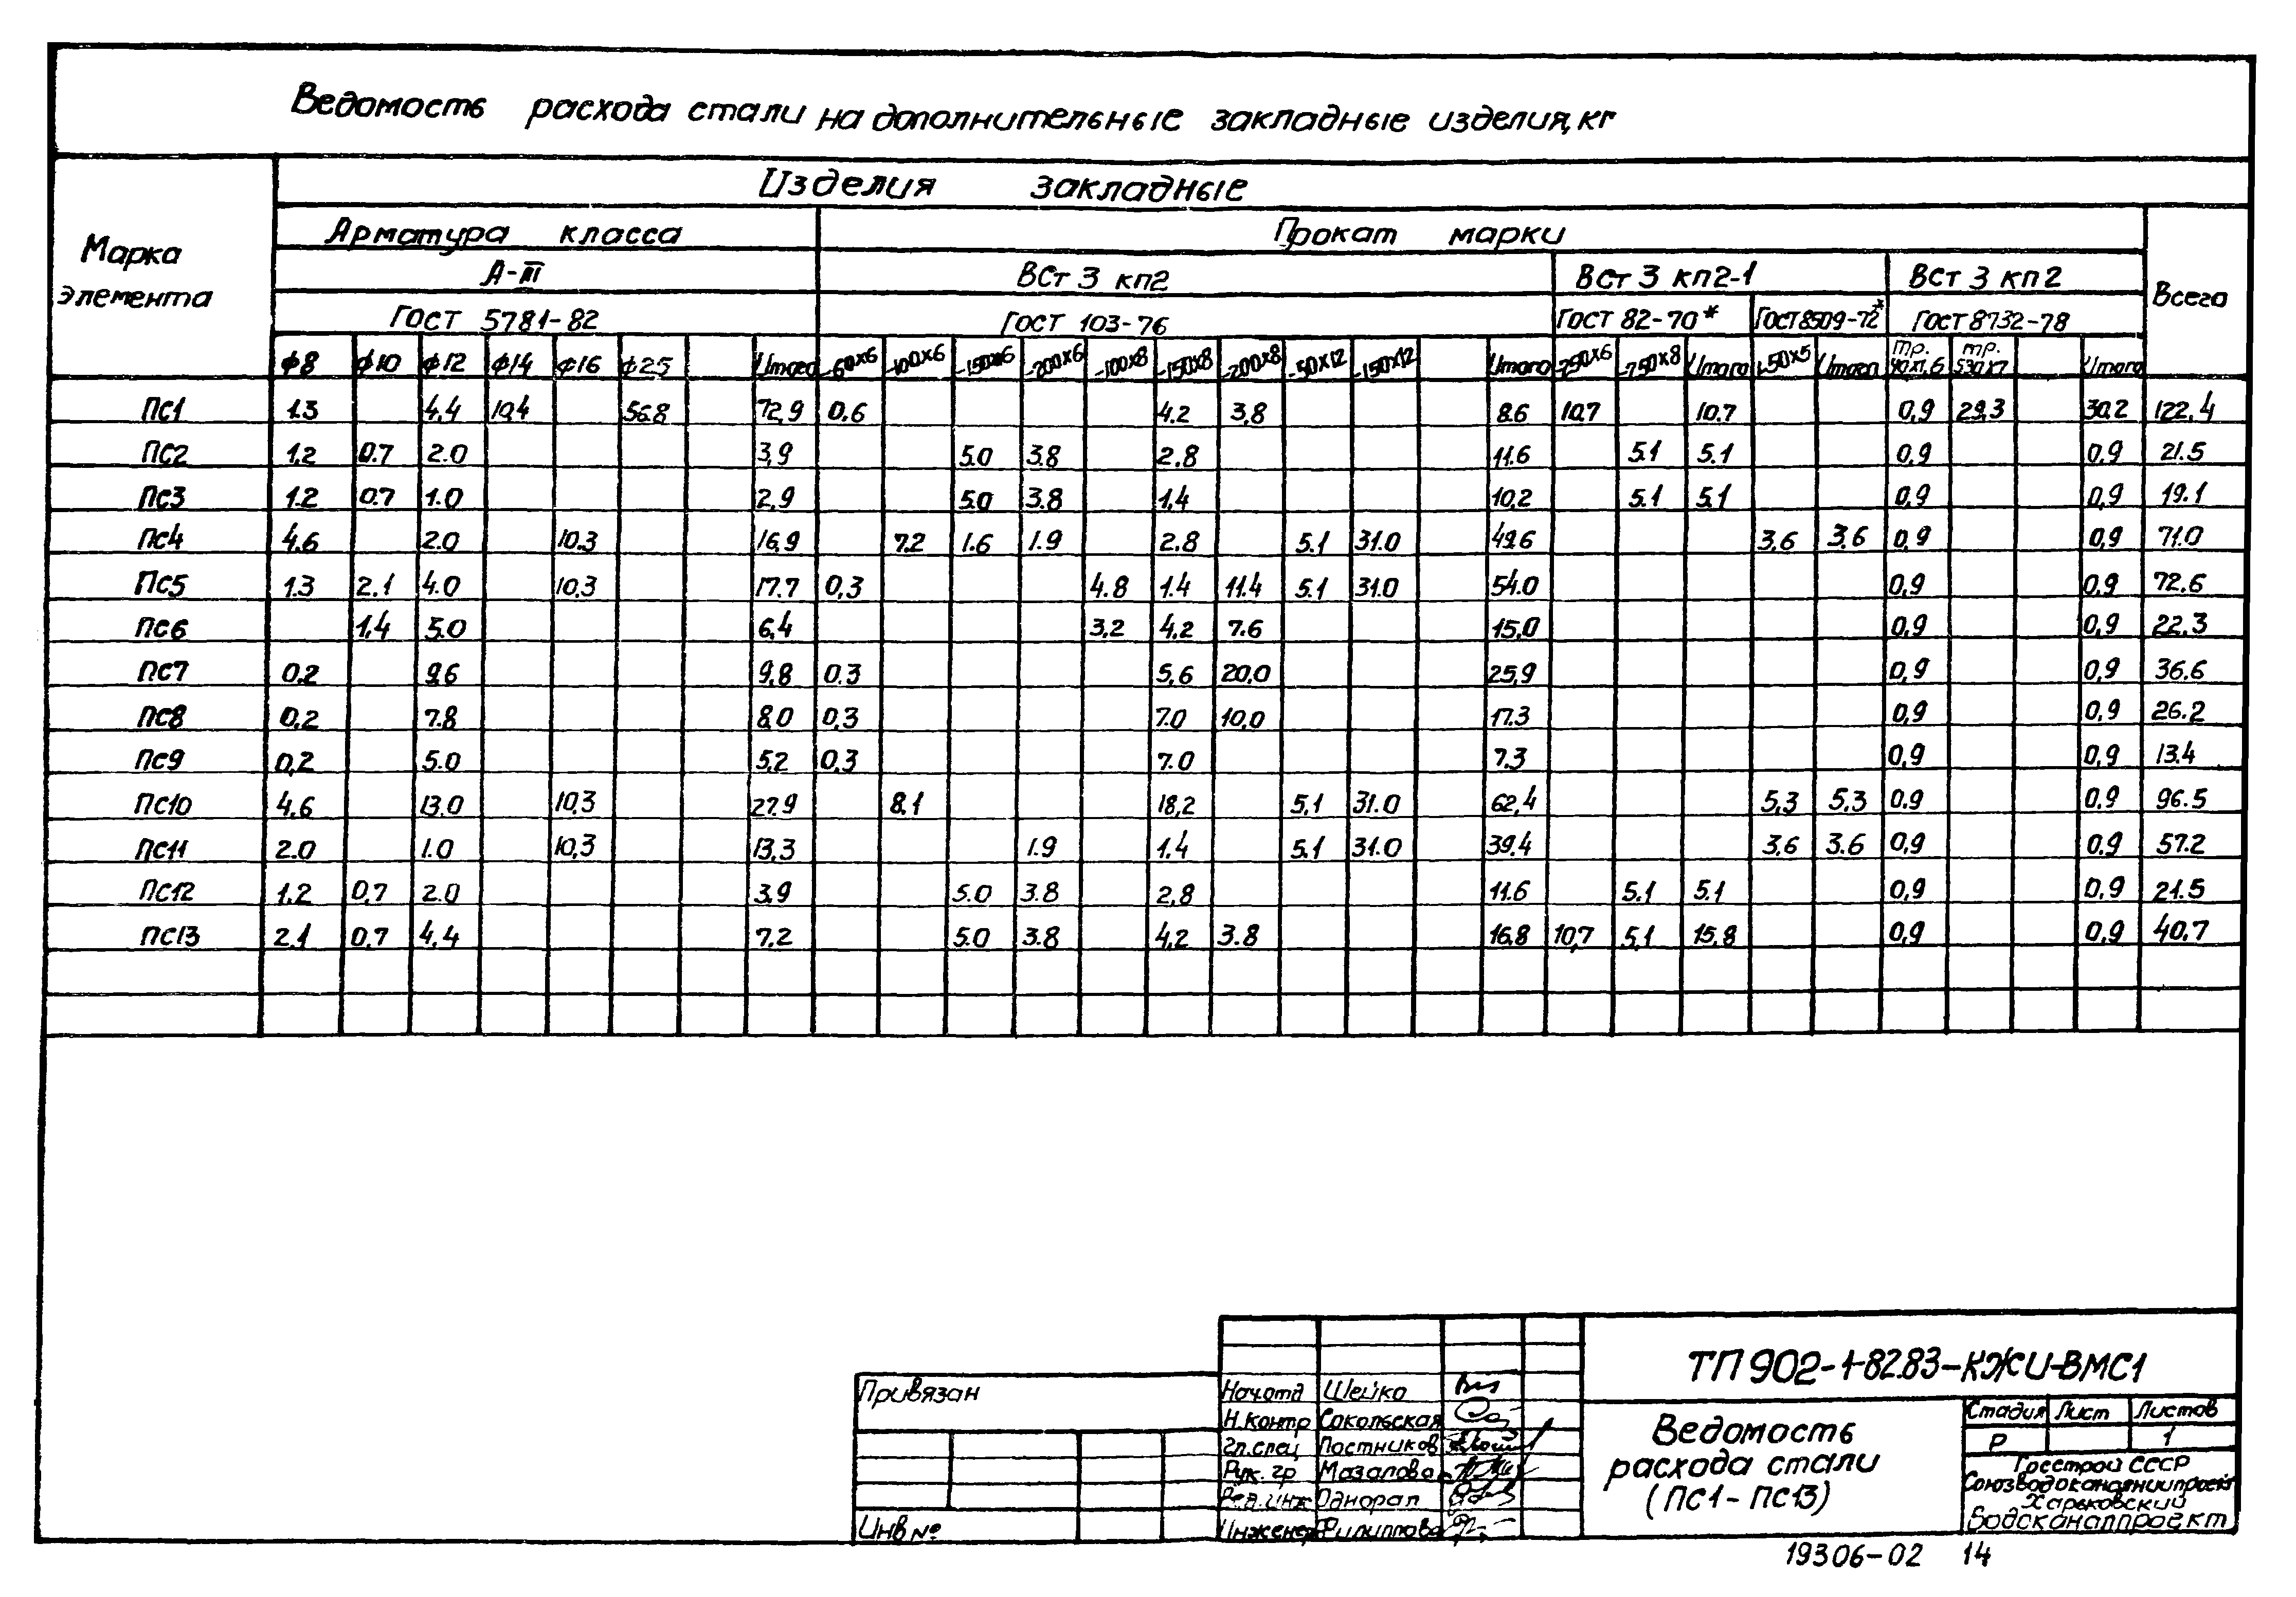 Ведомость расхода стали на дополнительные закладные изделия, кг
Марка элемента
Изделия закладные
Арматура класса
Прокат марки
Всего
А-III
ВСт 3 кп2
ВСт 3 кп2-1
ВСт 3 кп2
ГОСТ 5781-82
ГОСТ 103-76
ГОСТ 82-70*
ГОСТ 8509-72*
ГОСТ 8732-78
ф8 ф10 ф12 ф14 ф16 ф25 Итого -60х6 -100х6 -150х6 -200х6 -100х8 -150х8 -200х8 -50х12 -150х12 Итого -250х6 -750х8 Итого ∟50х5 Итого тр. 40х1,6 тр. 530х7 Итого
ПС1 1.3 4,4 10,4 56.8 72,9 0,6 4.2 3,8 8.6 10,7 10.7 0,9 29,3 30,2 122,4
ПС2 1,2 0.7 2.0 3,9 5.0 3.8 2.8 11.6 5.1 5.1 0,9 0,9 21.5
ПС3 1.2 0.7 1.0 2,9 5.0 3.8 1,4 10,2 5.1 5.1 0,9 0,9 19.1
ПС4 4,6 2.0 10.3 16,9 7.2 1.6 1.9 2.8 5.1 31.0 49.6 3,6 3.6 0,9 0,9 71.0
ПС5 1.3 2.1 4.0 10,3 17.7 0,3 4.8 1.4 11.4 5.1 31.0 54.0 0,9 0,9 72.6
ПС6 1,4 5.0 6,4 3.2 4,2 7.6 15,0 0,9 0,9 22.3
ПС7 0.2 9,6 9,8 0.3 5,6 20,0 25,9 0,9 0,9 36.6
ПС8 0,2 7.8 8,0 0,3 7.0 10,0 17.3 0,9 0,9 26.2
ПС9 0,2 5.0 5,2 0,3 7.0 7.3 0,9 0,9 13.4
ПС10 4,6 13.0 10,3 27.9 8.1 18,2 5,1 31.0 62,4 5,3 5,3 0.9 0.9 96.5
ПС11 2.0 1.0 10,3 13,3 1.9 1.4 5.1 31.0 39.4 3,6 3.6 0,9 0.9 57.2
ПС12 1.2 0,7 2.0 3,9 5.0 3.8 2,8 11.6 5.1 5.1 0,9 0,9 21.5
ПС13 2.1 0,7 4,4 7.2 5.0 3.8 4,2 3.8 16.8 10,7 5,1 15,8 0,9 0,9 40.7
ТП 902-1-82.83-КЖИ-ВМС1
Привязан
Нач.отд Шейко
Н.контр Сокольская
Гл.спец Постников
Рук. гр Мазалова
Вед.инж Однорал
Инженер Филиппова
Инв №
Ведомость
расхода стали
(ПС1 - ПС13)
Стадия Лист Листов
Р 1
Госстрой СССР
Союзводоканалниипроект
Харьковский
Водоканалпроект
19306-02 14